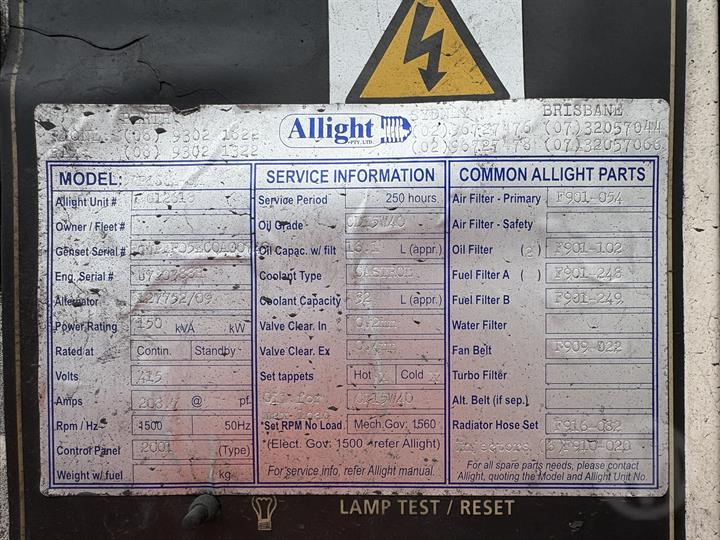 BRISBANE
(08) 9302 1322 (02)96727476 (07)32057044
(08) 9302 1322 (02)9672 (07)32057066
Allight PTY. LTD.
MODEL:
Allight Unit #
Owner / Fleet #
Genset Serial #
Eng. Serial #
Alternator L27752/09
Power Rating 150 kVA kW
Rated at Contin. Standby
Volts 415
Amps 208.7 @ pf
Rpm / Hz 1500 50Hz
Control Panel 2001 (Type)
Weight w/fuel kg
SERVICE INFORMATION
Service Period 250 hours
Oil Grade CD15W40
Oil Capac. w/ filt L (appr.)
Coolant Type CASTROL
Coolant Capacity 32 L (appr.)
Valve Clear. In
Valve Clear. Ex
Set tappets Hot Cold X
Oil for CF15W40
max load
*Set RPM No Load. Mech.Gov: 1560
*(Elect. Gov: 1500 *refer Allight)
For service info, refer Allight manual.
COMMON ALLIGHT PARTS
Air Filter - Primary F901-054
Air Filter - Safety
Oil Filter (2) F901-102
Fuel Filter A ( ) F901-248
Fuel Filter B F901-249
Water Filter
Fan Belt F909-022
Turbo Filter
Alt. Belt (if sep.)
Radiator Hose Set F916-032
Injectors F910-020
For all spare parts needs, please contact
Allight, quoting the Model and Allight Unit No.
LAMP TEST / RESET